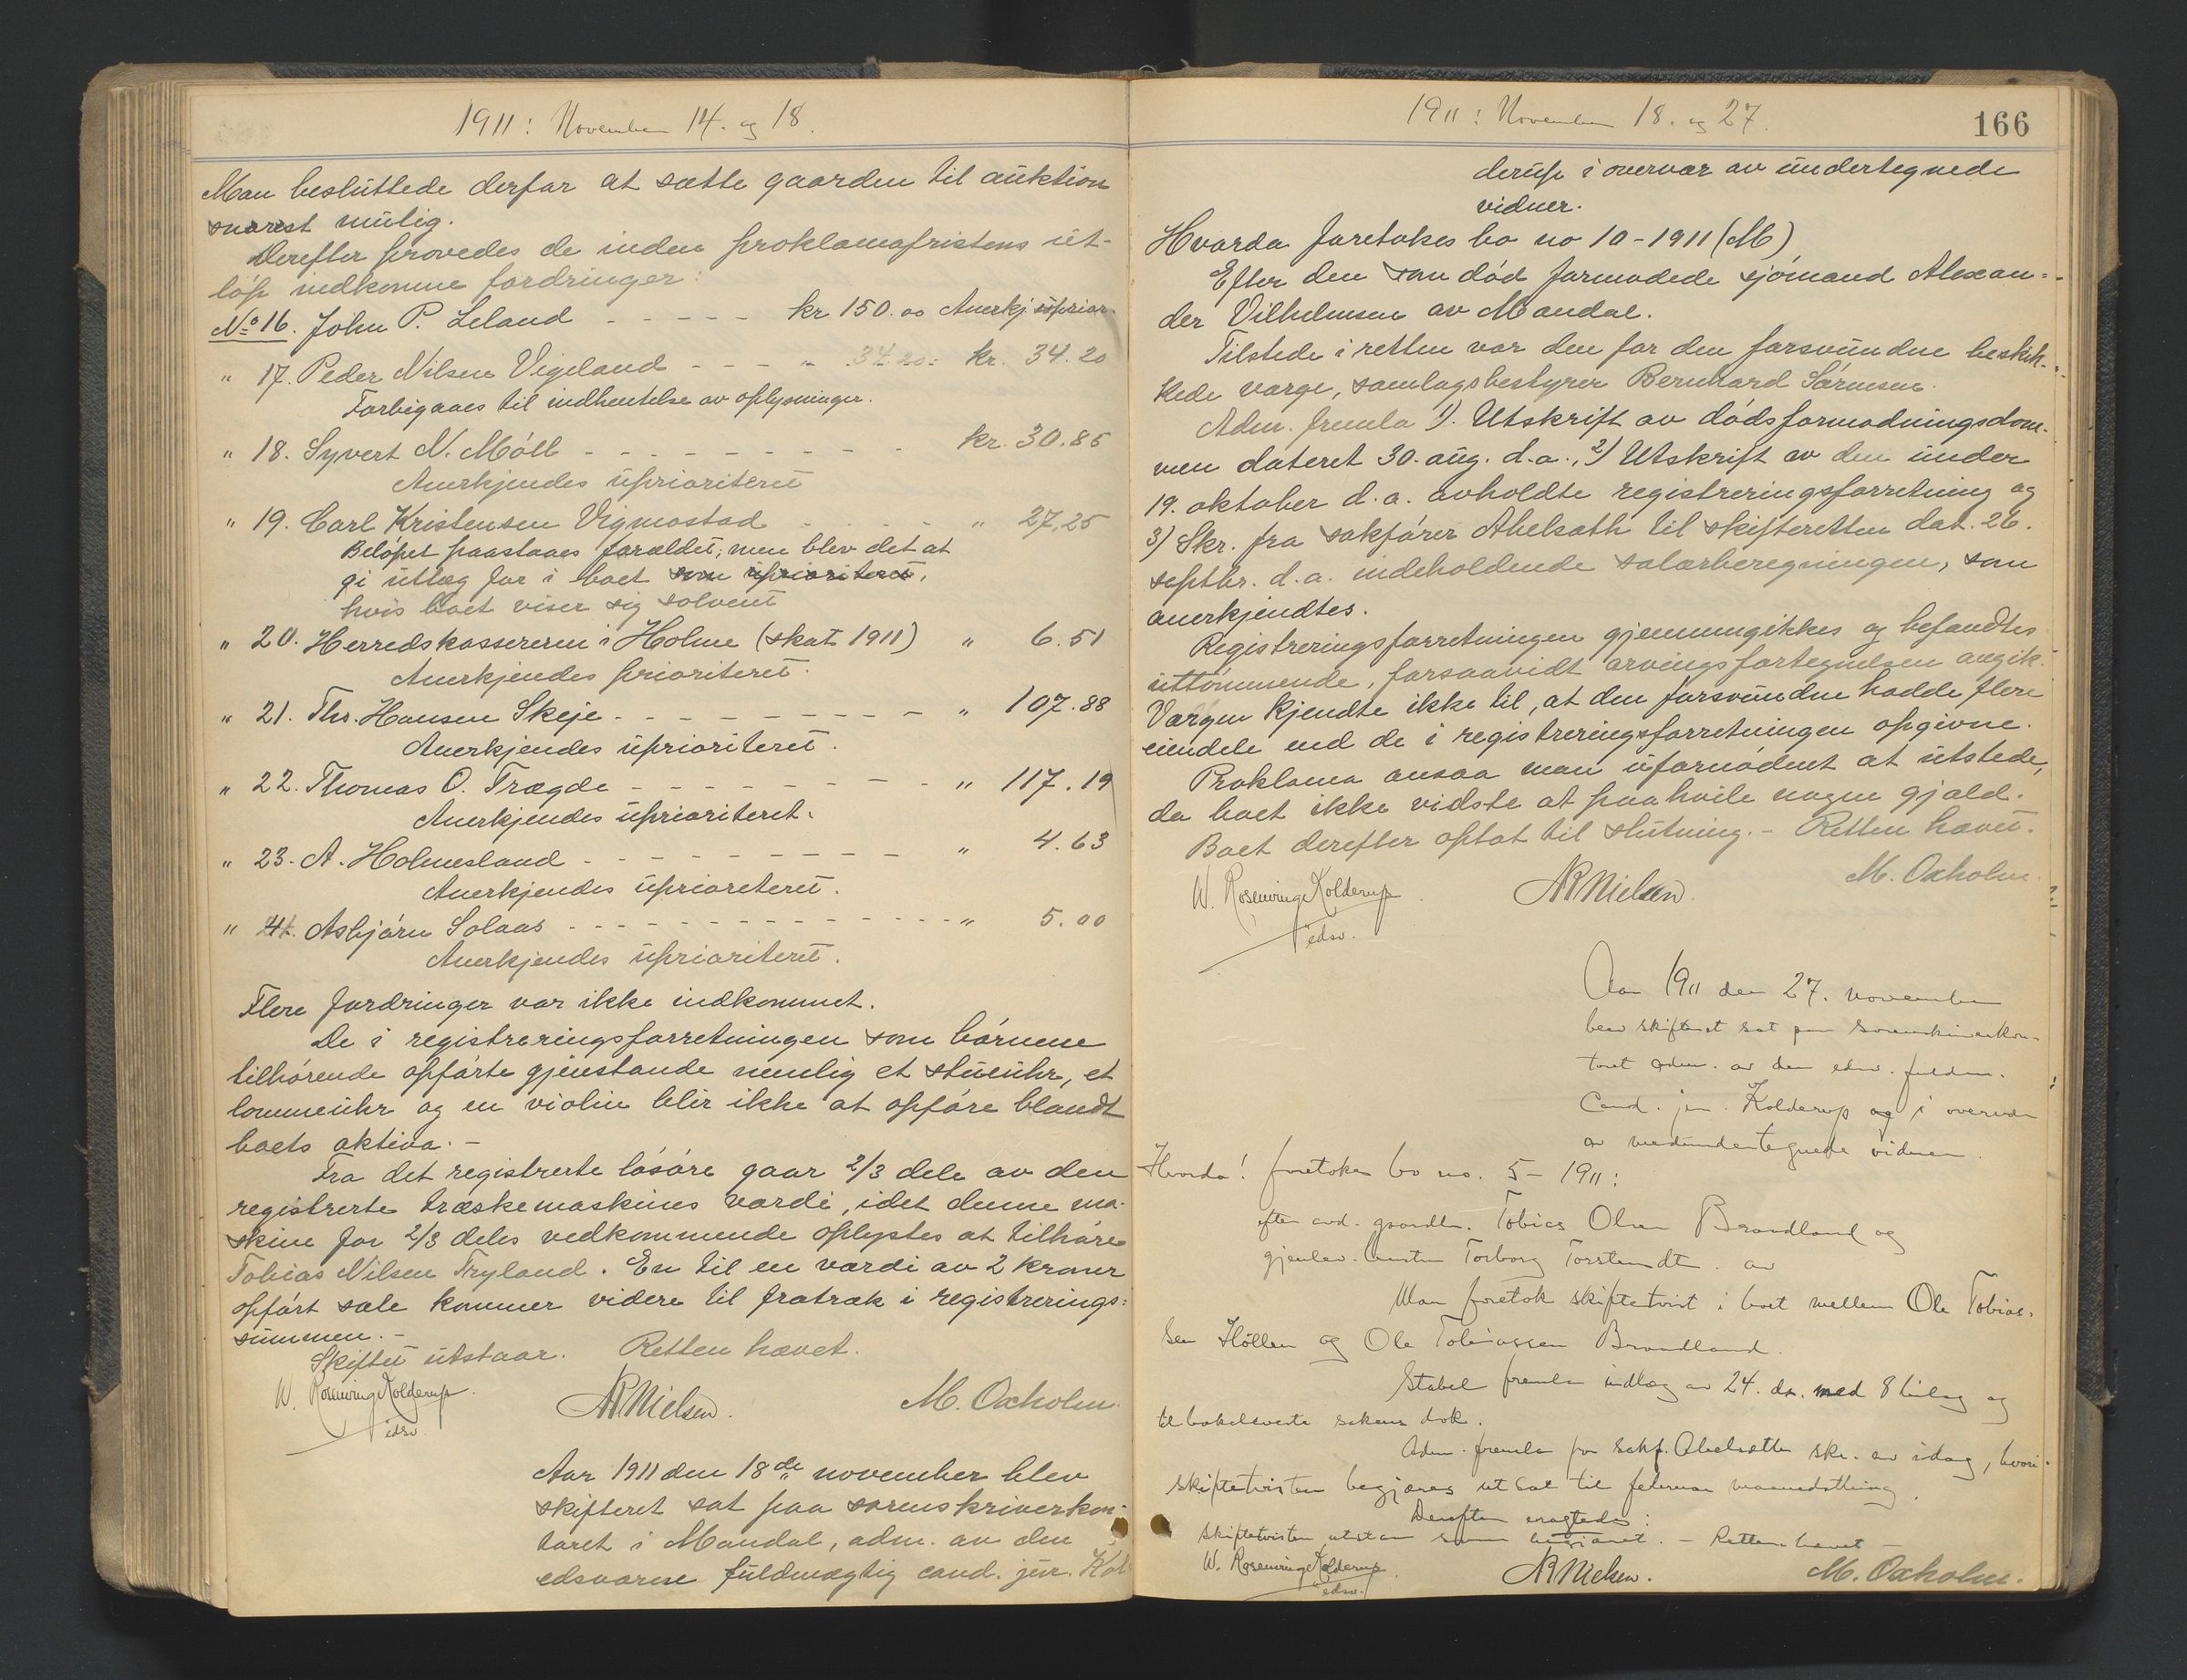 1911: November 14. og 18.
Man besluttede derfor at sætte gaarden til auktion
snarest mulig.
Derefter prøvedes de inden proklamafristens ut-
løp indkomne fordringer:
No 16. John P. Leland - - - - - kr 150.00 Anerkj. uprior.
" 17. Peder Nilsen Vigeland - - - " 34.20: kr. 34.20
Forbigaaes til indhentelse av oplysninger.
" 18. Syvert N. Möll - - - - - - - - - kr. 30.85
Anerkjendes uprioriteret
" 19. Carl Kristensen Vigmostad - - - - - " 27.25
Beløpet paastaaes forældet; men blev det at
gi utlæg for i boet som uprioriteret,
hvis boet viser sig solvent
" 20. Herredskassereren i Holme (skat 1911) " 6.51
Anerkjendes prioriteret.
" 21. Thr. Hansen Skeje - - - - - - - - - " 107.88
Anerkjendes uprioriteret.
" 22. Thomas O. Trægde - - - - - - - - " 117.19
Anerkjendes uprioriteret.
" 23. A. Holmesland - - - - - - - - - " 4.63
Anerkjendes uprioreteret.
" 41. Asbjørn Solaas - - - - - - - - - - - - " 5.00
Anerkjendes uprioriteret.
Flere fordringer var ikke indkommet.
De i registreringsforretningen som børnene
tilhørende opførte gjenstande nemlig et stueuhr, et
lommeuhr og en violin blir ikke at opføre blandt
boets aktiva. -
Fra det registrerte løsøre gaar 2/3 dele av den
registrerte træskemaskines værdi, idet denne ma-
skine for 2/3 deles vedkommende oplystes at tilhøre
Tobias Nilsen Tryland. En til en værdi av 2 kroner
opført sæle kommer videre til fratræk i registrerings-
summen. -
Skiftet utstaar. Retten hævet.
W. Rosenvinge Kolderup edsv.
NRNielsen.
M. Oxholm.
Aar 1911 den 18de november blev
skifteret sat paa sorenskriverkon-
toret i Mandal, adm. av den
edsvorne fuldmægtig cand. jur. Kol
1911: November 18. og 27.
166
derup i overvær av undertegnede
vidner.
Hvorda foretokes bo no 10 - 1911 (M)
Efter den som død formodede sjømand Alexan-
der Vilhelmsen av Mandal.
Tilstede i retten var den for den forsvundne beskik-
kede værge, samlagsbestyrer Bernhard Sørensen.
Adm. fremla 1). Utskrift av dødsformodningsdom-
men dateret 30. aug. d.a., 2) Utskrift av den under
19. oktober d.a. avholdte registreringsforretning og
3) Skr. fra sakfører Abelsæth til skifteretten dat. 26.
septbr. d.a. indeholdende salærberegningen, som
anerkjendtes.
Registreringsforretningen gjennemgikkes og befandtes
uttømmende, forsaavidt arvingsfortegnelsen angik.
Værgen kjendte ikke til, at den forsvundne hadde flere
eiendele end de i registreringsforretningen opgivne.
Proklama ansaa man ufornødent at utstede,
da boet ikke vidste at paahvile nogen gjæld.
Boet derefter optat til slutning. - Retten hævet.
W. Rosenvinge Kolderup edsv.
NRNielsen.
M. Oxholm.
Aar 1911 den 27. november
blev skifteret sat paa sorenskriverkon-
toret adm. av den edsv. fuldm.
Cand. jur. Kolderup og i overvær
av medundertegnede vidner.
Hvorda! foretokes bo no. 5 - 1911:
efter avd. gaardbr. Tobias Olsen Brandland og
gjenlev. hustru Torborg Torsteinsdtr. av
Man foretok skiftetvist i boet mellem Ole Tobias-
sen Höllen og Ole Tobiassen Brandland.
Stabel fremla indlæg av 24. ds. med 8 bilag og
tilbakeleverte sakens dok.
Adm. fremla fra sakf. Abelsæth skr. av idag, hvori
skiftetvisten begjæres utsat til februar maanedstting.
Derefter eragtedes:
Skiftetvisten utstaar som begjæret. - Retten hævet -
W. Rosenvinge Kolderup edsv.
NRNielsen.
M. Oxholm.